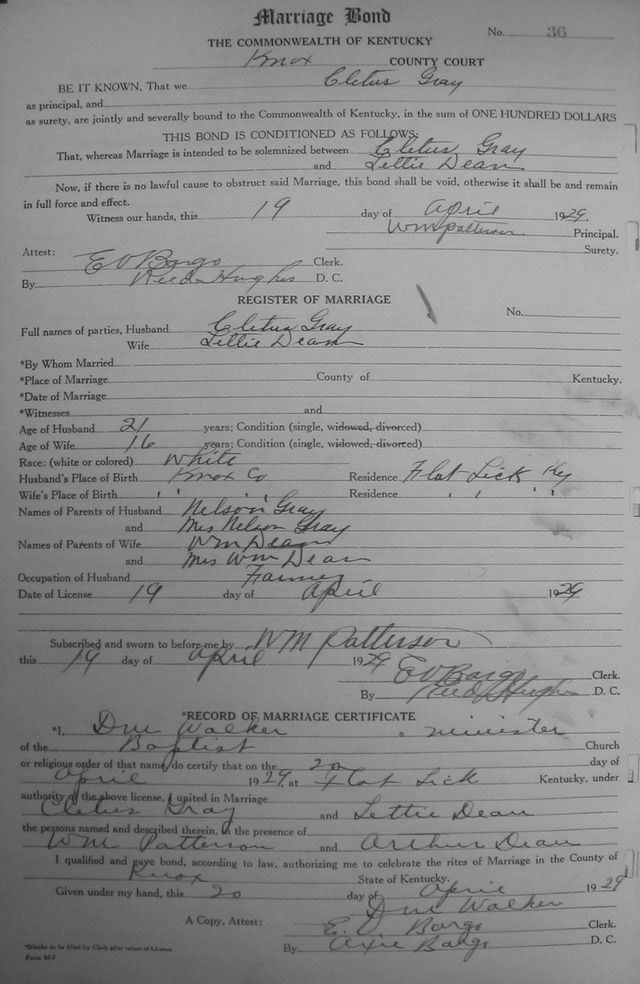 Marriage Bond
No. 36
THE COMMONWEALTH OF KENTUCKY
Knox COUNTY COURT
BE IT KNOWN, That we Cletus Gray
as principal, and
as surety, are jointly and severally bound to the Commonwealth of Kentucky, in the sum of ONE HUNDRED DOLLARS
THIS BOND IS CONDITIONED AS FOLLOWS:
That, whereas Marriage is intended to be solemnized between Cletus Gray
and Lettie Dean
Now, if there is no lawful cause to obstruct said Marriage, this bond shall be void, otherwise it shall be and remain
in full force and effect.
Witness our hands, this 19 day of April 1929.
Wm Patterson Principal.
Surety.
Attest:
E V Bargo Clerk.
By Reed Hughes D. C.
REGISTER OF MARRIAGE
No.
Full names of parties, Husband Cletus Gray
Wife Lettie Dean
*By Whom Married
*Place of Marriage County of Kentucky.
*Date of Marriage
*Witnesses and
Age of Husband 21 years; Condition (single, widowed, divorced)
Age of Wife 16 years; Condition (single, widowed, divorced)
Race: (white or colored) White
Husband's Place of Birth Knox Co Residence Flat Lick Ky
Wife's Place of Birth " " Residence " " " "
Names of Parents of Husband Nelson Gray
and Mrs Nelson Gray
Names of Parents of Wife Wm Dean
and Mrs Wm Dean
Occupation of Husband Farmer
Date of License 19 day of April 1929
Subscribed and sworn to before me by WM Patterson
this 19 day of April 1929
E V Bargo Clerk.
By Reed Hughes D. C.
*RECORD OF MARRIAGE CERTIFICATE
*I, Walker a minister
of the Baptist Church
or religious order of that name, do certify that on the 20 day of
April 1929, at Flat Lick Kentucky, under
authority of the above license, I united in Marriage
Cletus Gray and Lettie Dean
the persons named and described therein, in the presence of
WM Patterson and Arthur Dean
I qualified and gave bond, according to law, authorizing me to celebrate the rites of Marriage in the County of
Knox State of Kentucky.
Given under my hand, this 20 day of April 1929
Walker
A Copy, Attest: E. V. Bargo Clerk.
By Bargo D. C.
*Blanks to be filled by Clerk after return of License.
Form